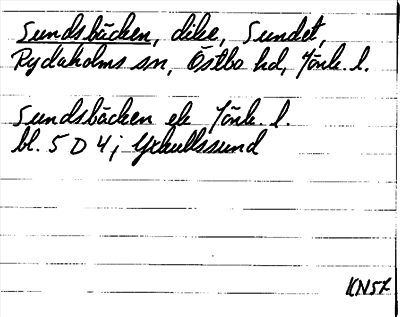 Sundsbäcken, dike, Sundet,
Rydaholms sn, Östbo hd, Jönk. l.
Sundsbäcken ek Jönk. l.
bl. 5 D 4j Yxkullssund
KN57